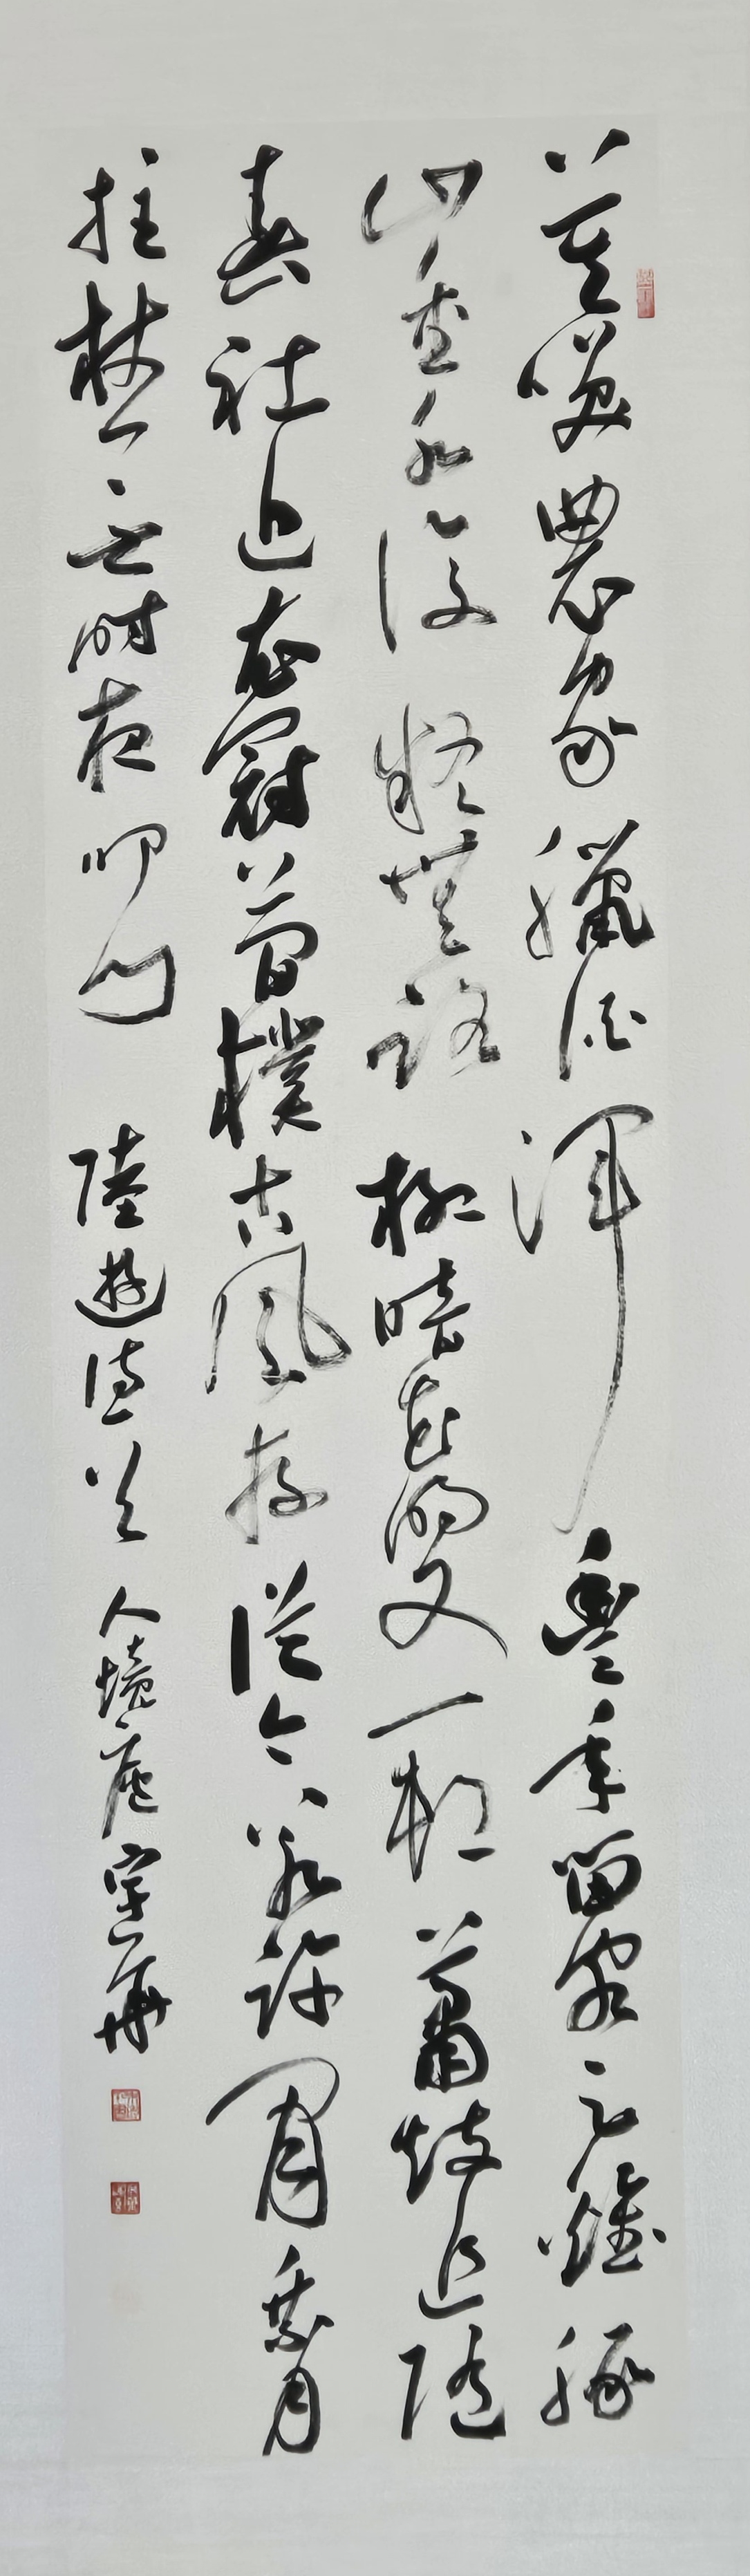 莫笑農家臘酒渾豐年留客足雞豚
山重水復疑無路柳暗花明又一村蕭鼓追隨
春社近衣冠簡樸古風存從今若許閒乘月
拄杖無時夜叩門 陸遊詩 人境廬